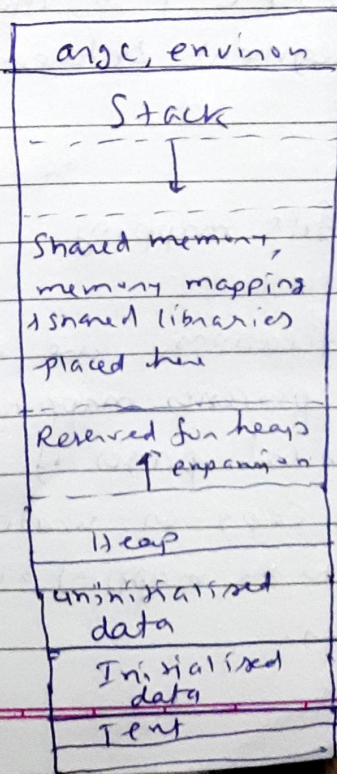 argc, environ
Stack
Shared memory,
memory mapping
& shared libraries
placed here
Reserved for heap
expansion
Heap
uninitialised
data
Initialised
data
Text